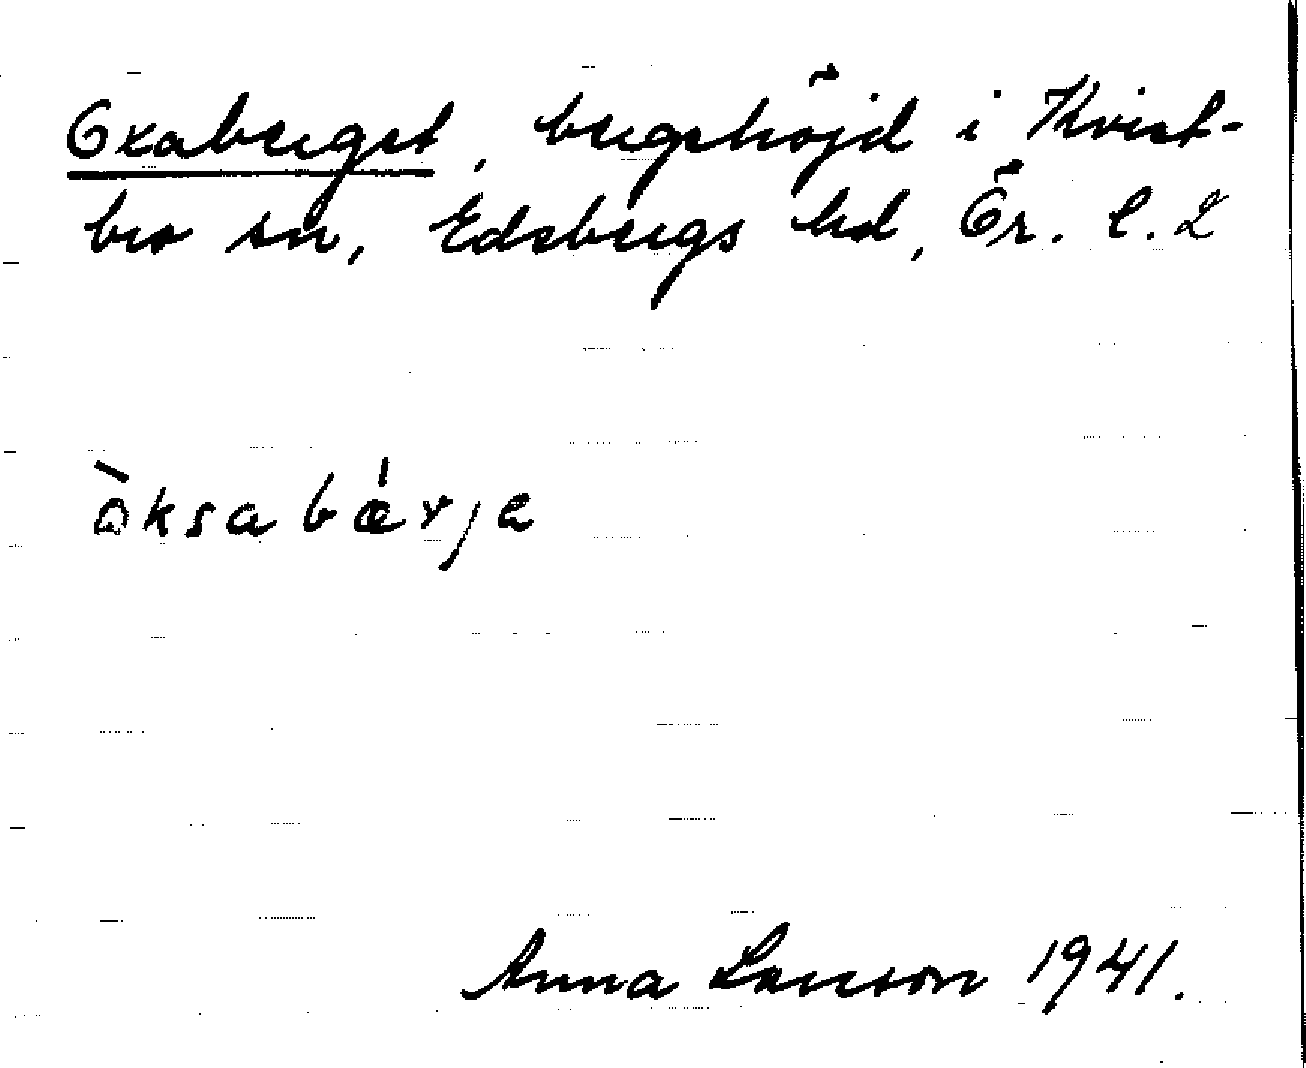 Oxaberget, bergshöjd i Kvist-
bro sn, Edsbergs hd, Ör. l. L
òksabǽrje
Anna Larsson 1941.